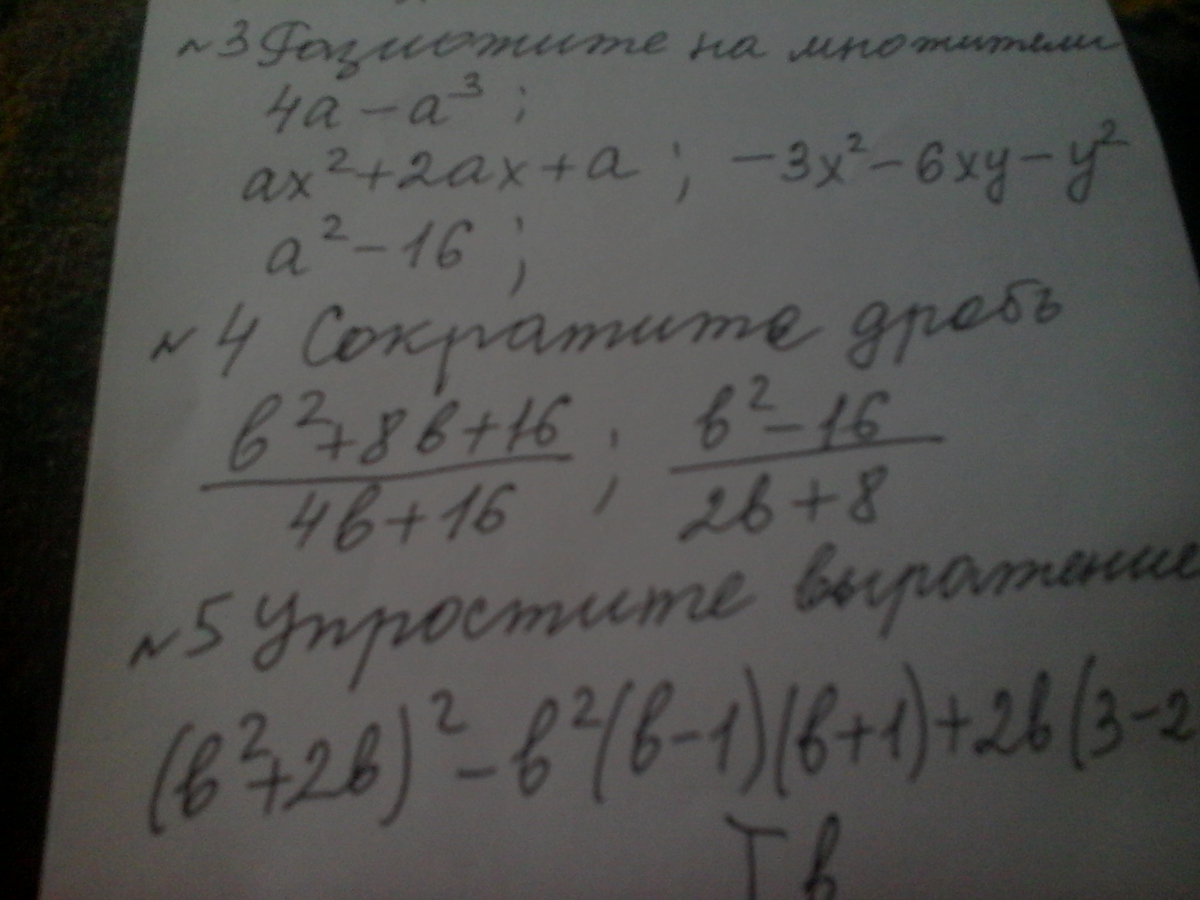 №3 Разложите на множители
4a - a³ ;
ax² + 2ax + a ; -3x² - 6xy - y²
a² - 16 ;
№4 Сократите дробь
в² + 8в + 16 / 4в + 16 ; в² - 16 / 2в + 8
№5 Упростите выражение
(в² + 2в)² - в²(в - 1)(в + 1) + 2в(3 - 2